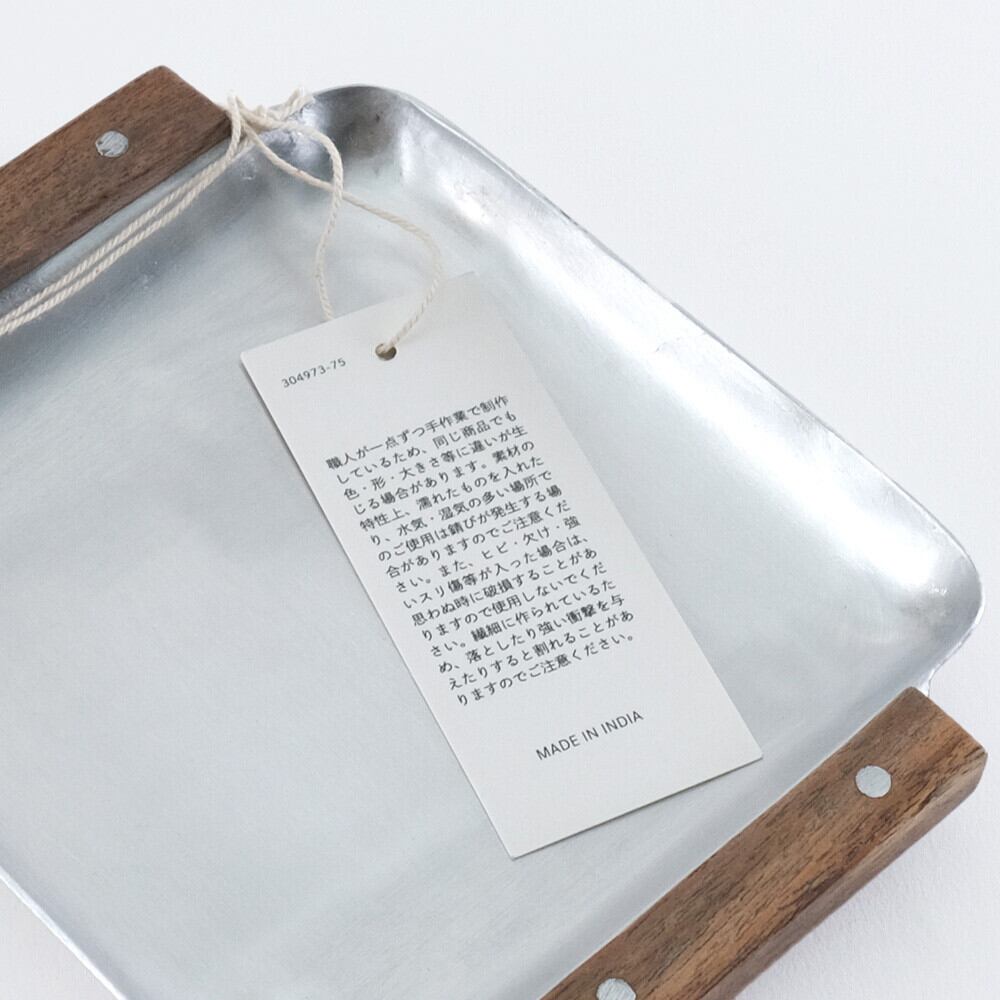 304973-75
職人が一点ずつ手作業で制作
しているため、同じ商品でも
色・形・大きさ等に違いが生
じる場合があります。素材の
特性上、濡れたものを入れた
り、水気・湿気の多い場所で
のご使用は錆びが発生する場
合がありますのでご注意くだ
さい。また、ヒビ・欠け・強
いスリ傷等が入った場合は、
思わぬ時に破損することがあ
りますので使用しないでくだ
さい。繊細に作られているた
め、落としたり強い衝撃を与
えたりすると割れることがあ
りますのでご注意ください。
MADE IN INDIA